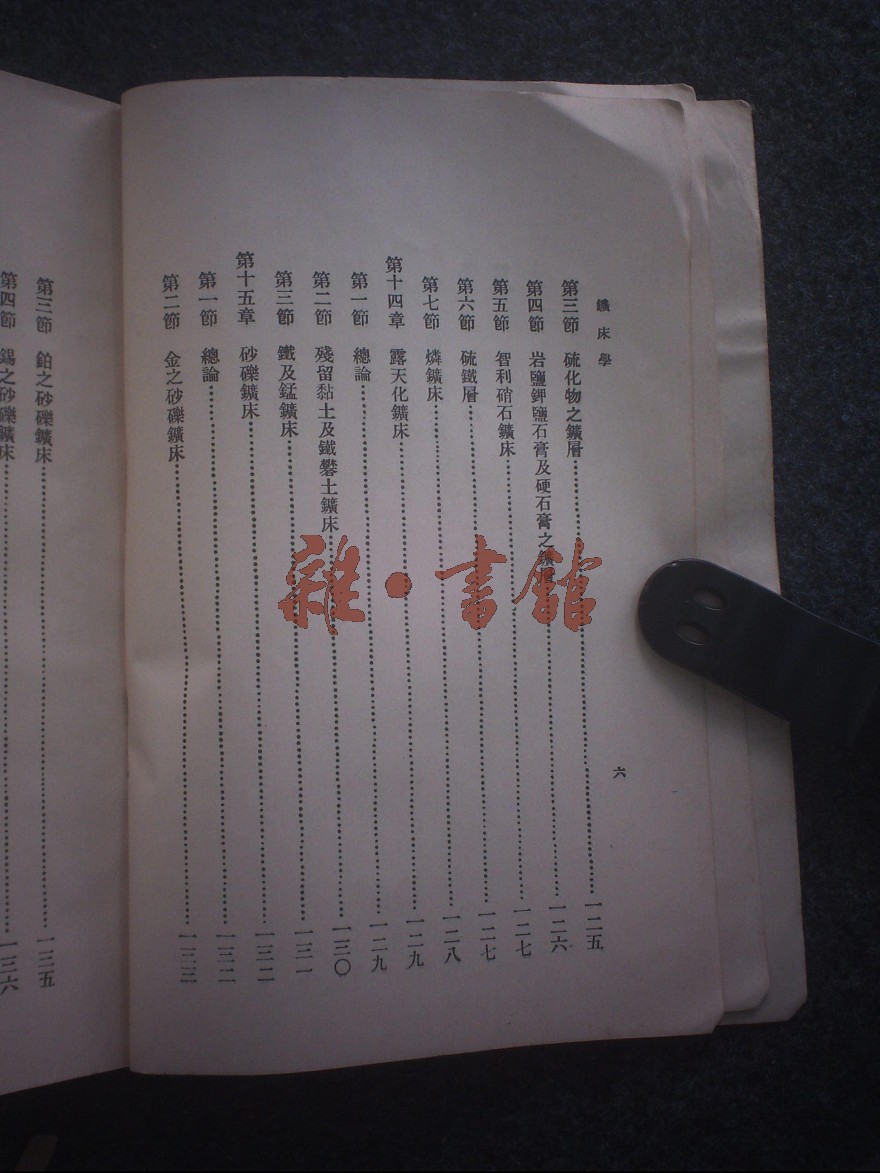 鑛床學
六
第三節 硫化物之鑛層 一二五
第四節 岩鹽鉀鹽石膏及硬石膏之鑛層 一二六
第五節 智利硝石鑛床 一二七
第六節 硫鐵層 一二七
第七節 燐鑛床 一二八
第十四章 露天化鑛床 一二九
第一節 總論 一二九
第二節 殘留黏土及鐵礬土鑛床 一三〇
第三節 鐵及錳鑛床 一三一
第十五章 砂礫鑛床 一三二
第一節 總論 一三二
第二節 金之砂礫鑛床 一三三
第三節 鉑之砂礫鑛床 一三五
第四節 錫之砂礫鑛床 一三六
雜·書館